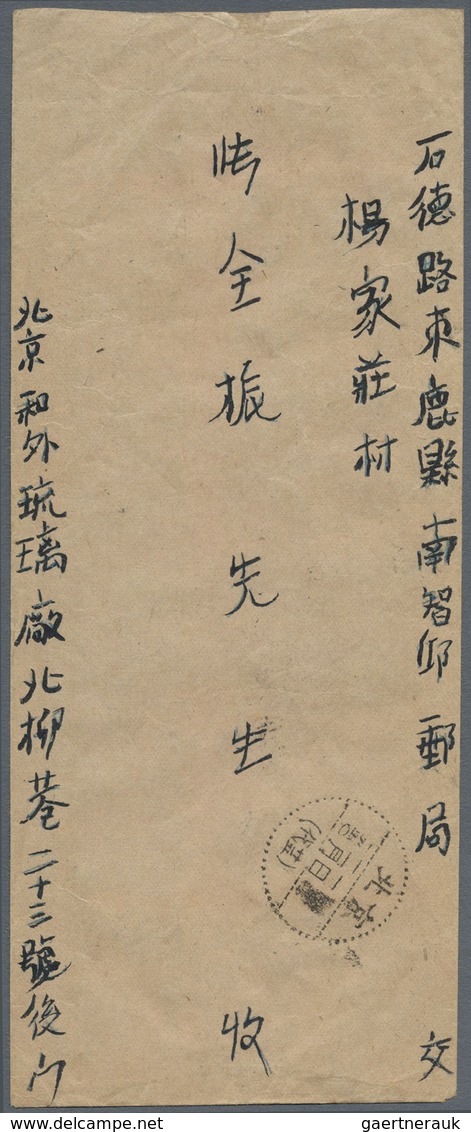 石德路束鹿縣南智邱郵局 交
楊家莊村
全振先生 收
北京和外琉璃廠北柳巷二十三號後门
北京
(代荘)
gaertnerauk